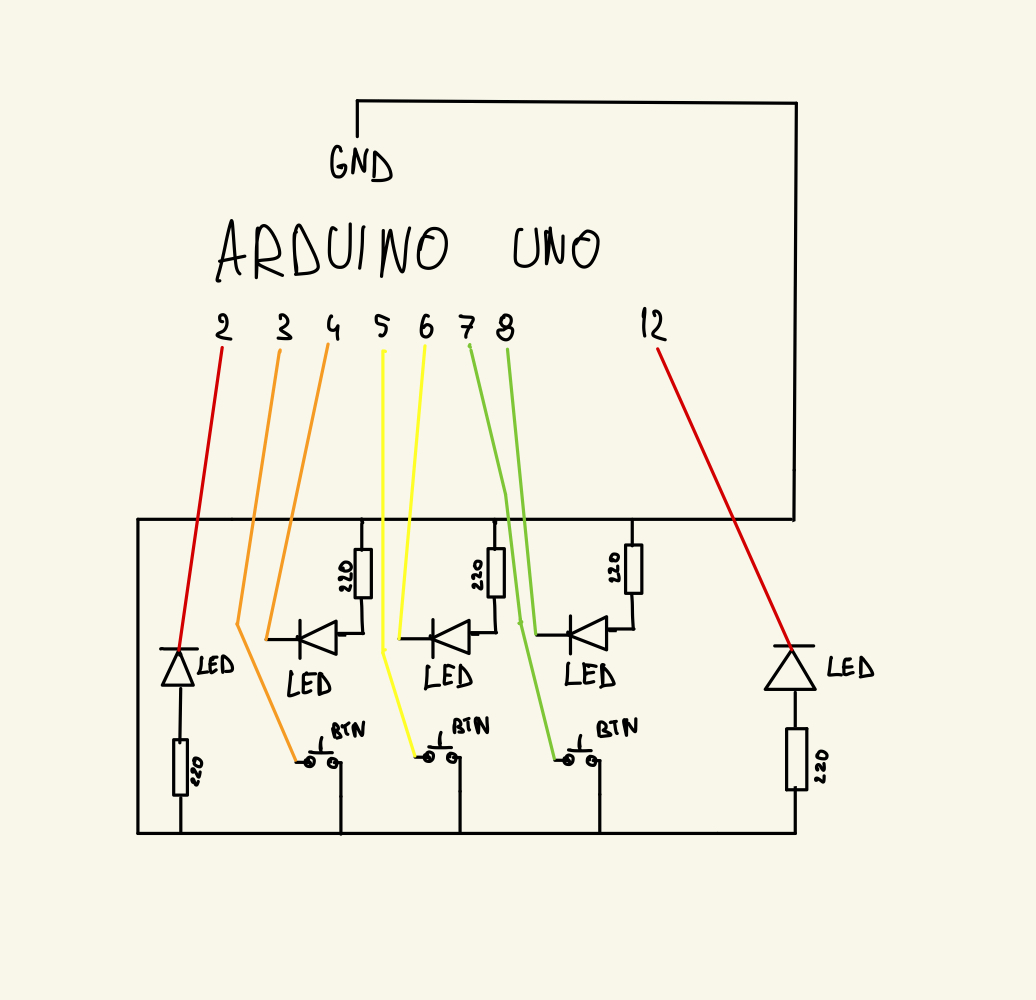 GND
ARDUINO UNO
2 3 4 5 6 7 8 12
220 220 220
LED LED LED LED LED
BTN BTN BTN
220 220